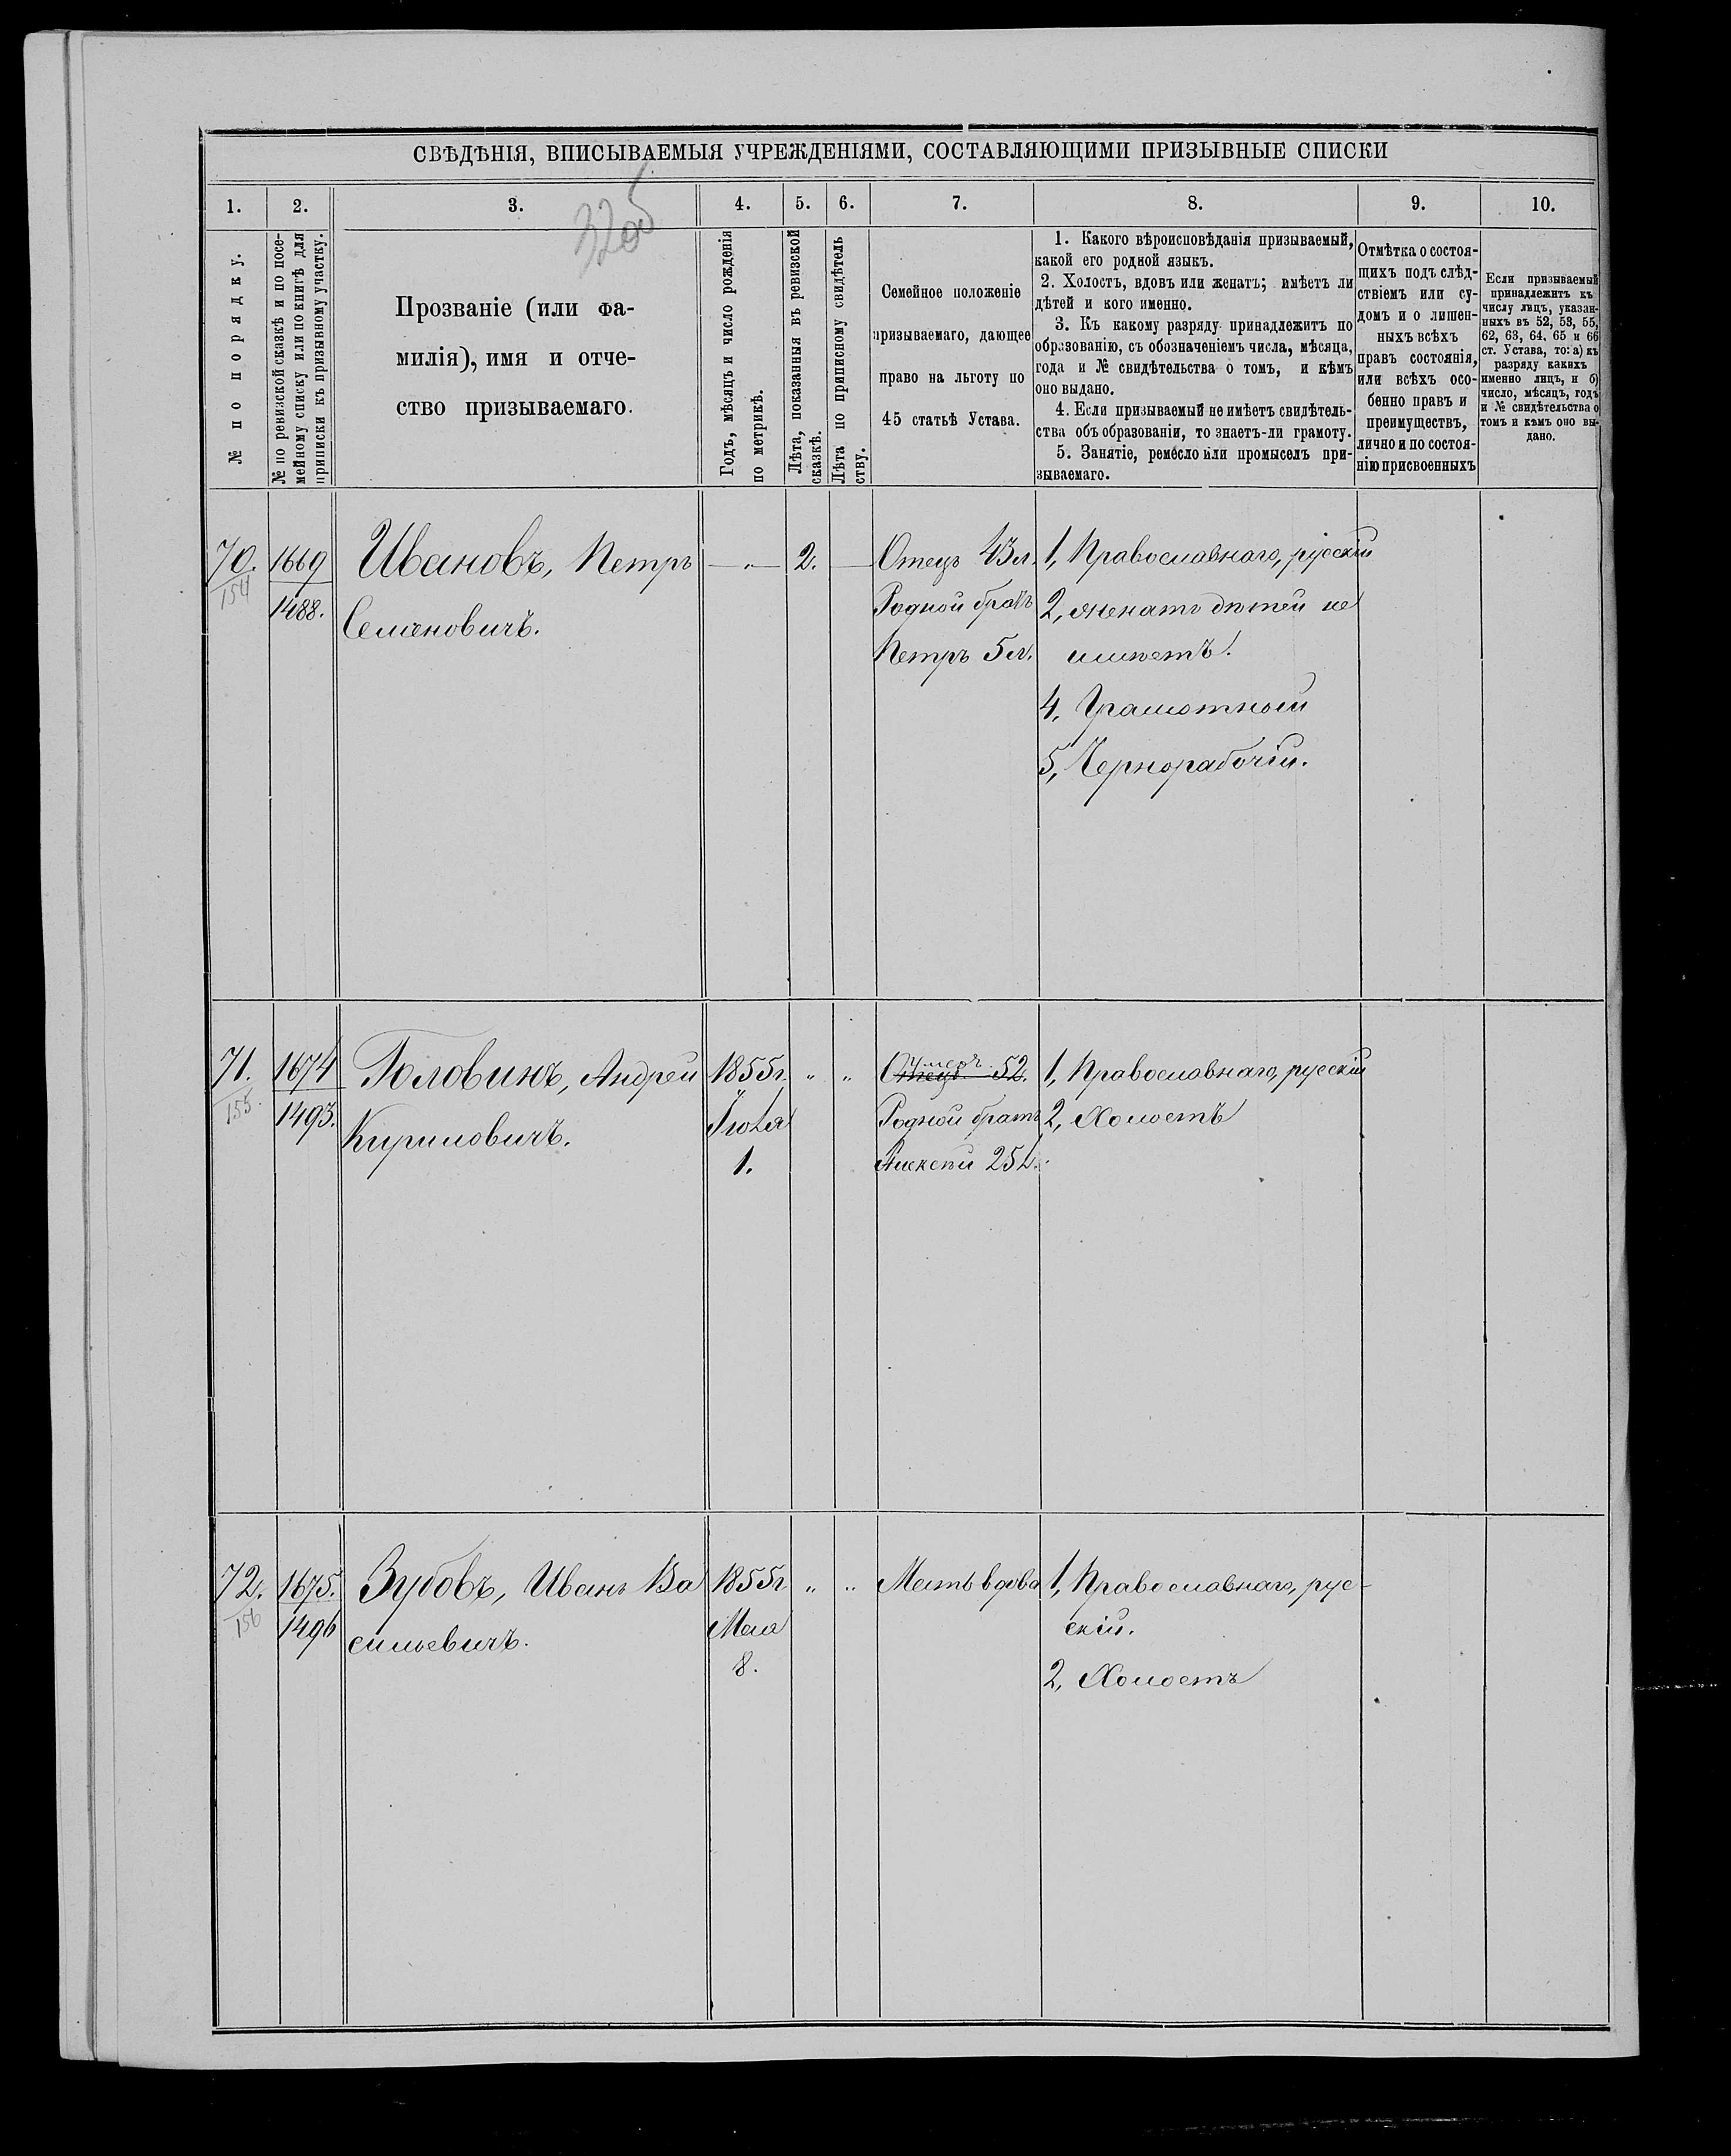 СВѢДѢНІЯ, ВПИСЫВАЕМЫЯ УЧРЕЖДЕНІЯМИ, СОСТАВЛЯЮЩИМИ ПРИЗЫВНЫЕ СПИСКИ
1. 2. 3. 4. 5. 6. 7. 8. 9. 10.
№ по порядку.
№ по ревизской сказкѣ и по посе-
мейному списку или по книгѣ для
приписки къ призывному участку.
Прозваніе (или фа-
милія), имя и отче-
ство призываемаго.
Годъ, мѣсяцъ и число рожденія
по метрикѣ.
Лѣта, показанныя въ ревизской
сказкѣ.
Лѣта по приписному свидѣтель
ству.
Семейное положеніе
призываемаго, дающее
право на льготу по
45 статьѣ Устава.
1. Какого вѣроисповѣданія призываемый,
какой его родной языкъ.
2. Холостъ, вдовъ или женатъ; имѣетъ ли
дѣтей и кого именно.
3. Къ какому разряду принадлежитъ по
образованію, съ обозначеніемъ числа, мѣсяца,
года и № свидѣтельства о томъ, и кѣмъ
оно выдано.
4. Если призываемый не имѣетъ свидѣтель-
ства объ образованіи, то знаетъ-ли грамоту.
5. Занятіе, ремесло или промыселъ при-
зываемаго.
Отмѣтка о состоя-
щихъ подъ слѣд-
ствіемъ или су-
домъ и о лишен-
ныхъ всѣхъ
правъ состоянія,
или всѣхъ осо-
бенно правъ и
преимуществъ,
лично и по состоя-
нію присвоенныхъ
Если призываемый
принадлежитъ къ
числу лицъ, указан-
ныхъ въ 52, 53, 55,
62, 63, 64, 65 и 66
ст. Устава, то: а) къ
разряду какихъ
именно лицъ, и б)
число, мѣсяцъ, годъ
и № свидѣтельства о
томъ и кѣмъ оно вы-
дано.
70.
154
1669
1488.
Ивановъ, Петръ
Семеновичъ.
— „ —
2.
—
Отецъ 43 л.
Родной братъ
Петръ 5 л.
1, Православнаго, русскій
2, женатъ дѣтей не
имѣетъ.
4, Грамотный
5, Чернорабочій.
71.
155.
1674
1493.
Головинъ, Андрей
Кириловичъ.
1855 г.
Іюля
1.
„ „
умеръ
Отецъ 52.
Родной братъ
Алексѣй 25 л.
1, Православнаго, русскій
2, Холостъ
72.
156
1675.
1496
Зубовъ, Иванъ Ва
сильевичъ.
1855 г
Мая
8.
„ „
Мать вдова
1, Православнаго, рус-
скій.
2, Холостъ